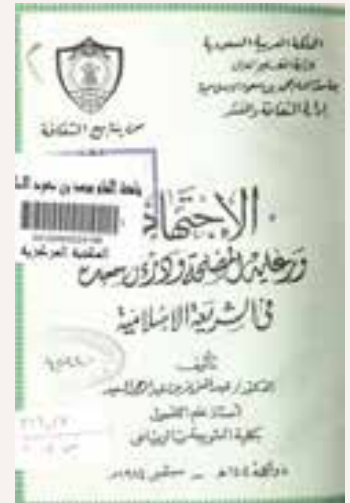 المملكة العربية السعودية
وزارة التعليم العالي
جامعة الإمام محمد بن سعود الإسلامية
إدارة الثقافة والنشر
من ينابيع الثقافة
جامعة الإمام محمد بن سعود
المكتبة المركزية
الاجتهاد
ورعاية المصلحة ودرء المفسدة
في الشريعة الإسلامية
تأليف
الدكتور / عبد العزيز بن عبد الرحمن السعيد
أستاذ علم الأصول
بكلية الشريعة بالرياض